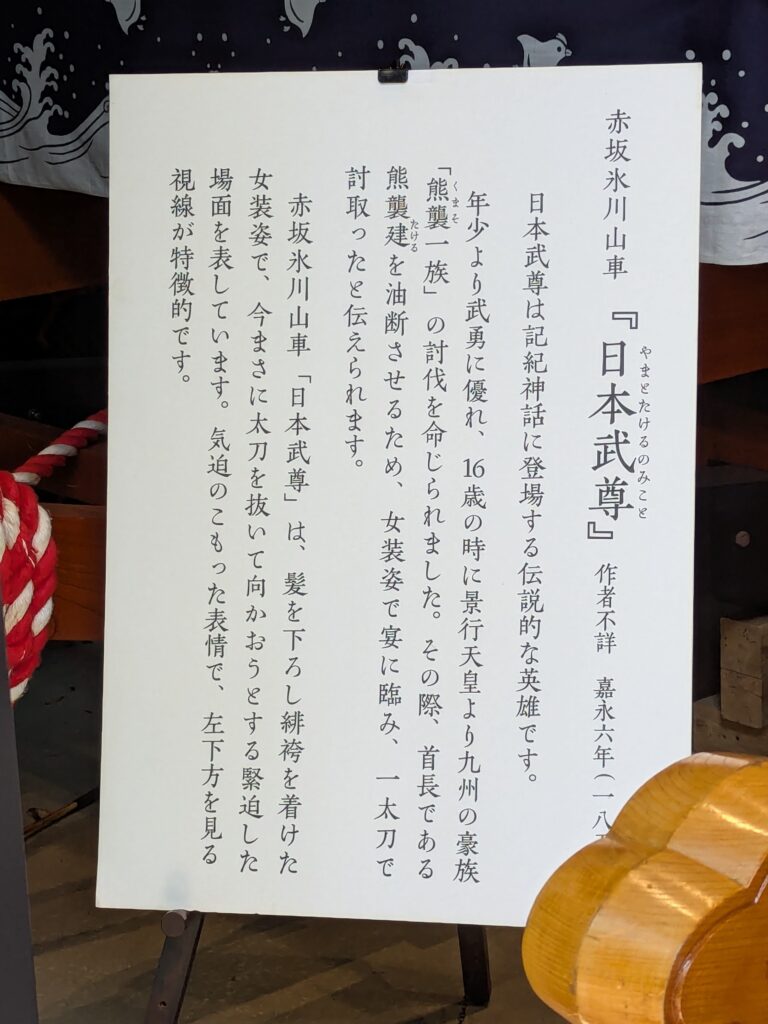 赤坂氷川山車『日本武尊』作者不詳 嘉永六年(一八
やまとたけるのみこと
日本武尊は記紀神話に登場する伝説的な英雄です。
年少より武勇に優れ、16歳の時に景行天皇より九州の豪族
「熊襲一族」の討伐を命じられました。その際、首長である
くまそ
熊襲建を油断させるため、女装姿で宴に臨み、一太刀で
たける
討取ったと伝えられます。
赤坂氷川山車「日本武尊」は、髪を下ろし緋袴を着けた
女装姿で、今まさに太刀を抜いて向かおうとする緊迫した
場面を表しています。気迫のこもった表情で、左下方を見る
視線が特徴的です。